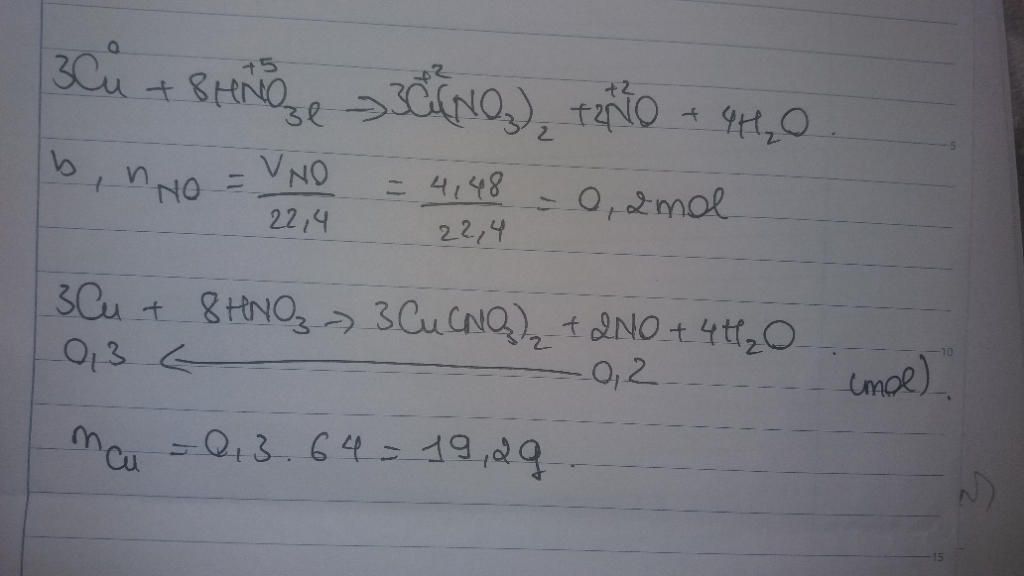 3Cu⁰ + 8HN⁺⁵O₃l → 3Cu⁺²(NO₃)₂ + 2N⁺²O + 4H₂O.
b, nNO = VNO/22,4 = 4,48/22,4 = 0,2mol
3Cu + 8HNO₃ → 3Cu(NO₃)₂ + 2NO + 4H₂O.
0,3 ← 0,2 (mol).
mCu = 0,3.64 = 19,2g.
5
10
15